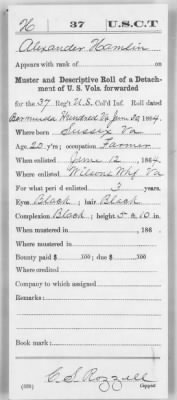 H | 37 | U.S.C.T
Alexander Hamlin
Appears with rank of
Muster and Descriptive Roll of a Detach-
ment of U. S. Vols. forwarded
for the 37 Reg't U.S. Col'd Inf. Roll dated
Bermuda Hundred Va June 20, 1864.
Where born Sussex Va
Age 20 y'rs; occupation Farmer
When enlisted June 12, 1864.
Where enlisted Wilsons Whf Va
For what period enlisted 3 years.
Eyes Black; hair Black
Complexion Black; height 5 ft. 10 in.
When mustered in , 186 .
Where mustered in
Bounty paid $ 100; due $ 100
Where credited
Company to which assigned
Remarks:
Book mark:
C. S. Rozzell
(339) Copyist.